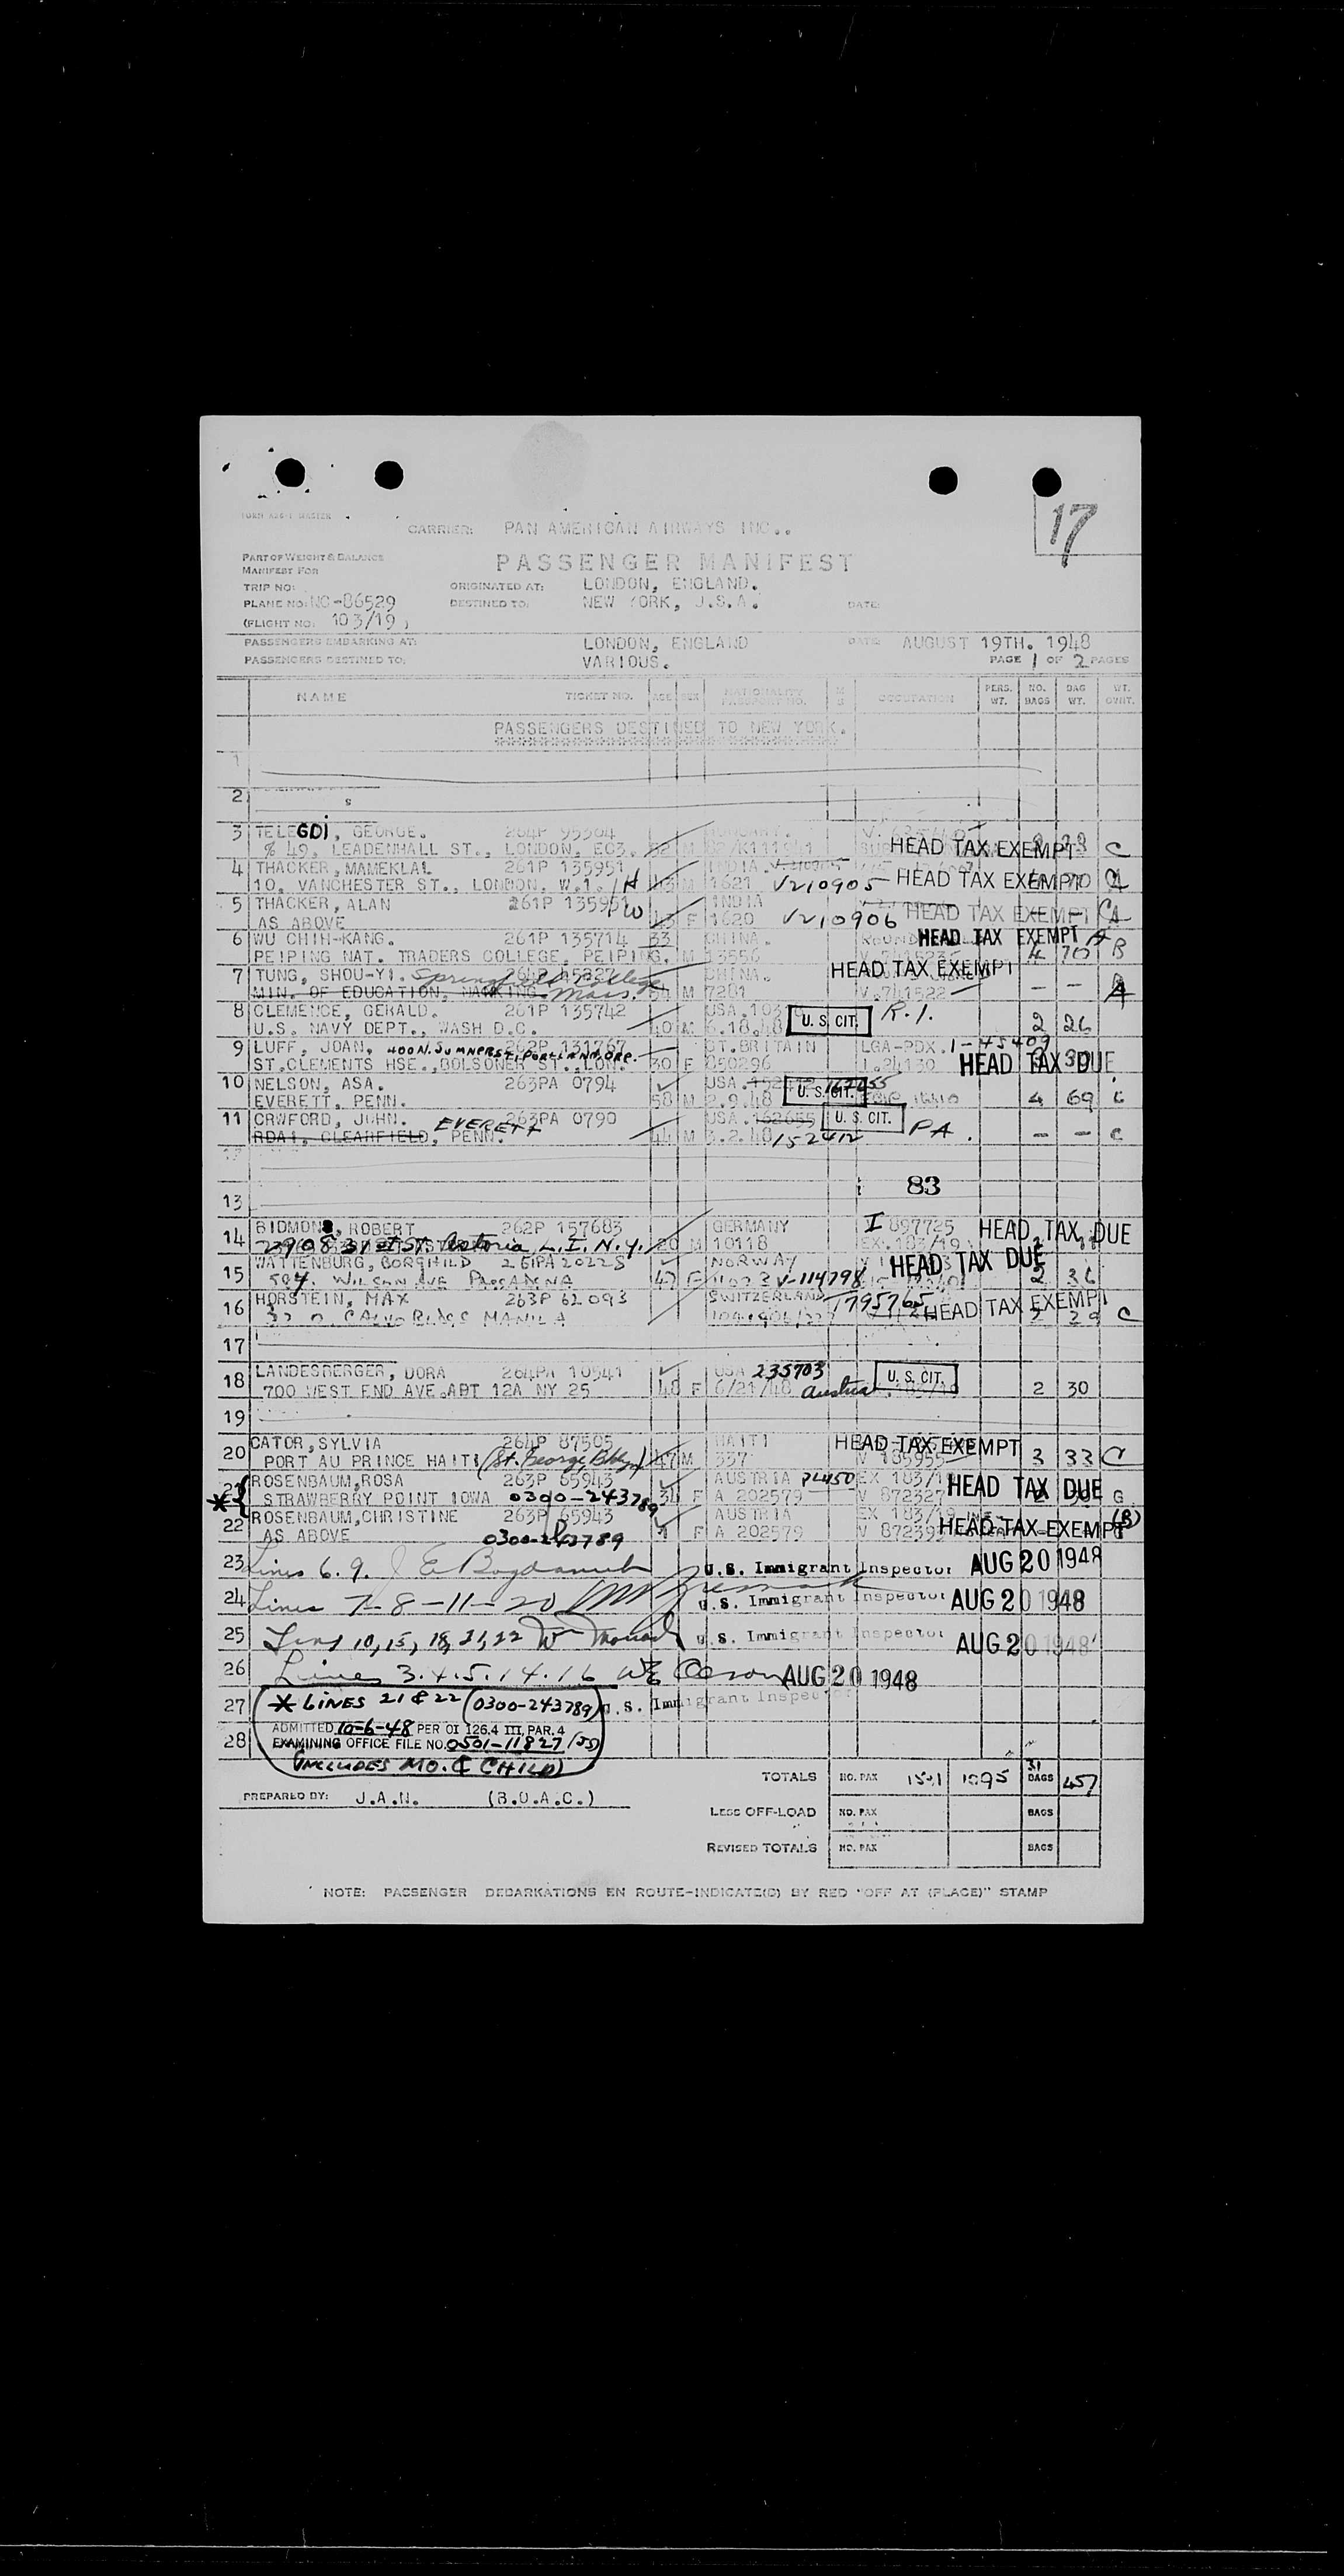 17
CARRIER: PAN AMERICAN AIRWAYS INC..
PART OF WEIGHT & BALANCE
MANIFEST FOR
PASSENGER MANIFEST
TRIP NO:
ORIGINATED AT: LONDON, ENGLAND.
PLANE NO: NC-86529
DESTINED TO: NEW YORK, U.S.A. DATE:
(FLIGHT NO: 103/19)
PASSENGERS EMBARKING AT: LONDON, ENGLAND DATE: AUGUST 19TH. 1948
PASSENGERS DESTINED TO: VARIOUS. PAGE 1 OF 2 PAGES
NAME TICKET NO. AGE SEX NATIONALITY PASSPORT NO. OCCUPATION PERS. WT. NO. BAGS BAG WT. WT. OVHT.
PASSENGERS DESTINED TO NEW YORK.
1
2
3 TELEGDI, GEORGE. 264P 95304
% 49, LEADENHALL ST., LONDON, EC3. M HEAD TAX EXEMPT C
4 THACKER, MAMEKLAL 261P 135951 INDIA.
10, VANCHESTER ST., LONDON. W.1. H 43 M 1621 V210905 HEAD TAX EXEMPT
5 THACKER, ALAN 261P 135951 W INDIA
AS ABOVE 43 F 1620 V210906 HEAD TAX EXEMPT
6 WU CHIH-KANG. 261P 135714 33 CHINA. HEAD TAX EXEMPT A
PEIPING NAT. TRADERS COLLEGE, PEIPING, M 13556 4 70 B
7 TUNG, SHOU-YI. Springfield College CHINA. HEAD TAX EXEMPT
MIN. OF EDUCATION, NANKING. Mass. 54 M 7281 V.741522 — — A
8 CLEMENCE, GERALD. 261P 135742 USA.103 U. S. CIT. R.I.
U.S. NAVY DEPT., WASH D.C. 40 M 6.18.48 2 26
9 LUFF, JOAN. 400 N. SUMNER ST. PORTLAND ORE. 262P 131767 GT.BRITAIN LGA-PDX. 1-45409
ST.CLEMENTS HSE., BOLSONER ST., LON. 30 F 850296 HEAD TAX DUE
10 NELSON, ASA. 263PA 0794 USA. U. S. CIT.
EVERETT, PENN. 58 M 2.9.48 4 69 C
11 CRWFORD, JOHN. 263PA 0790 USA. 162655 U. S. CIT.
RDA1, CLEARFIELD, PENN. EVERETT 44 M 3.2.48 152412 PA. — — C
83
13
14 BIDMON, ROBERT 262P 157683 GERMANY I 897725 HEAD TAX DUE
2908 31st ST. Astoria, L.I. N.Y. 20 M 10118 EX. 183/19
15 WATTENBURG, BORGHILD 261PA 20228 NORWAY HEAD TAX DUE
504. WILSON AVE PASSADENA 47 F V-114798 2 36
16 HORSTEIN, MAX 263P 62093 SWITZERLAND T795765 HEAD TAX EXEMPT
MANILA 2 29 C
17
18 LANDESBERGER, DORA 264PA 10541 USA 235703 U. S. CIT.
700 WEST END AVE.APT 12A NY 25 48 F 6/21/48 Austria 2 30
19
20 CATOR, SYLVIA 264P 87505 HAITI HEAD TAX EXEMPT
PORT AU PRINCE HAITI (St. George, Bklyn) 47 M 337 V 185955 3 33 C
21 ROSENBAUM, ROSA 263P 65943 AUSTRIA EX 183/19 HEAD TAX DUE
* STRAWBERRY POINT IOWA 0300-243789 34 F A 202579 V 872327 G
22 ROSENBAUM, CHRISTINE 263P 65943 AUSTRIA EX 183/19
AS ABOVE 0300-243789 F A 202579 V 87239 HEAD TAX EXEMPT (B)
23 Lines 6. 9. U.S. Immigrant Inspector AUG 20 1948
24 Lines 7-8-11-20 U.S. Immigrant Inspector AUG 20 1948
25 Lines 10, 15, 18, 21, 22 U.S. Immigrant Inspector AUG 20 1948
26 Lines 3.4.5.14.16 AUG 20 1948
27 * LINES 21 & 22 (0300-243789) U.S. Immigrant Inspector
ADMITTED 10-6-48 PER OI 126.4 III, PAR. 4
28 EXAMINING OFFICE FILE NO. 0501-11827/
(INCLUDES MO. & CHILD)
TOTALS NO. PAX 15+1 1095 31 BAGS 457
PREPARED BY: J.A.N. (B.O.A.C.)
LESS OFF-LOAD NO. PAX BAGS
REVISED TOTALS NO. PAX BAGS
NOTE: PASSENGER DEBARKATIONS EN ROUTE-INDICATE(D) BY RED "OFF AT (PLACE)" STAMP